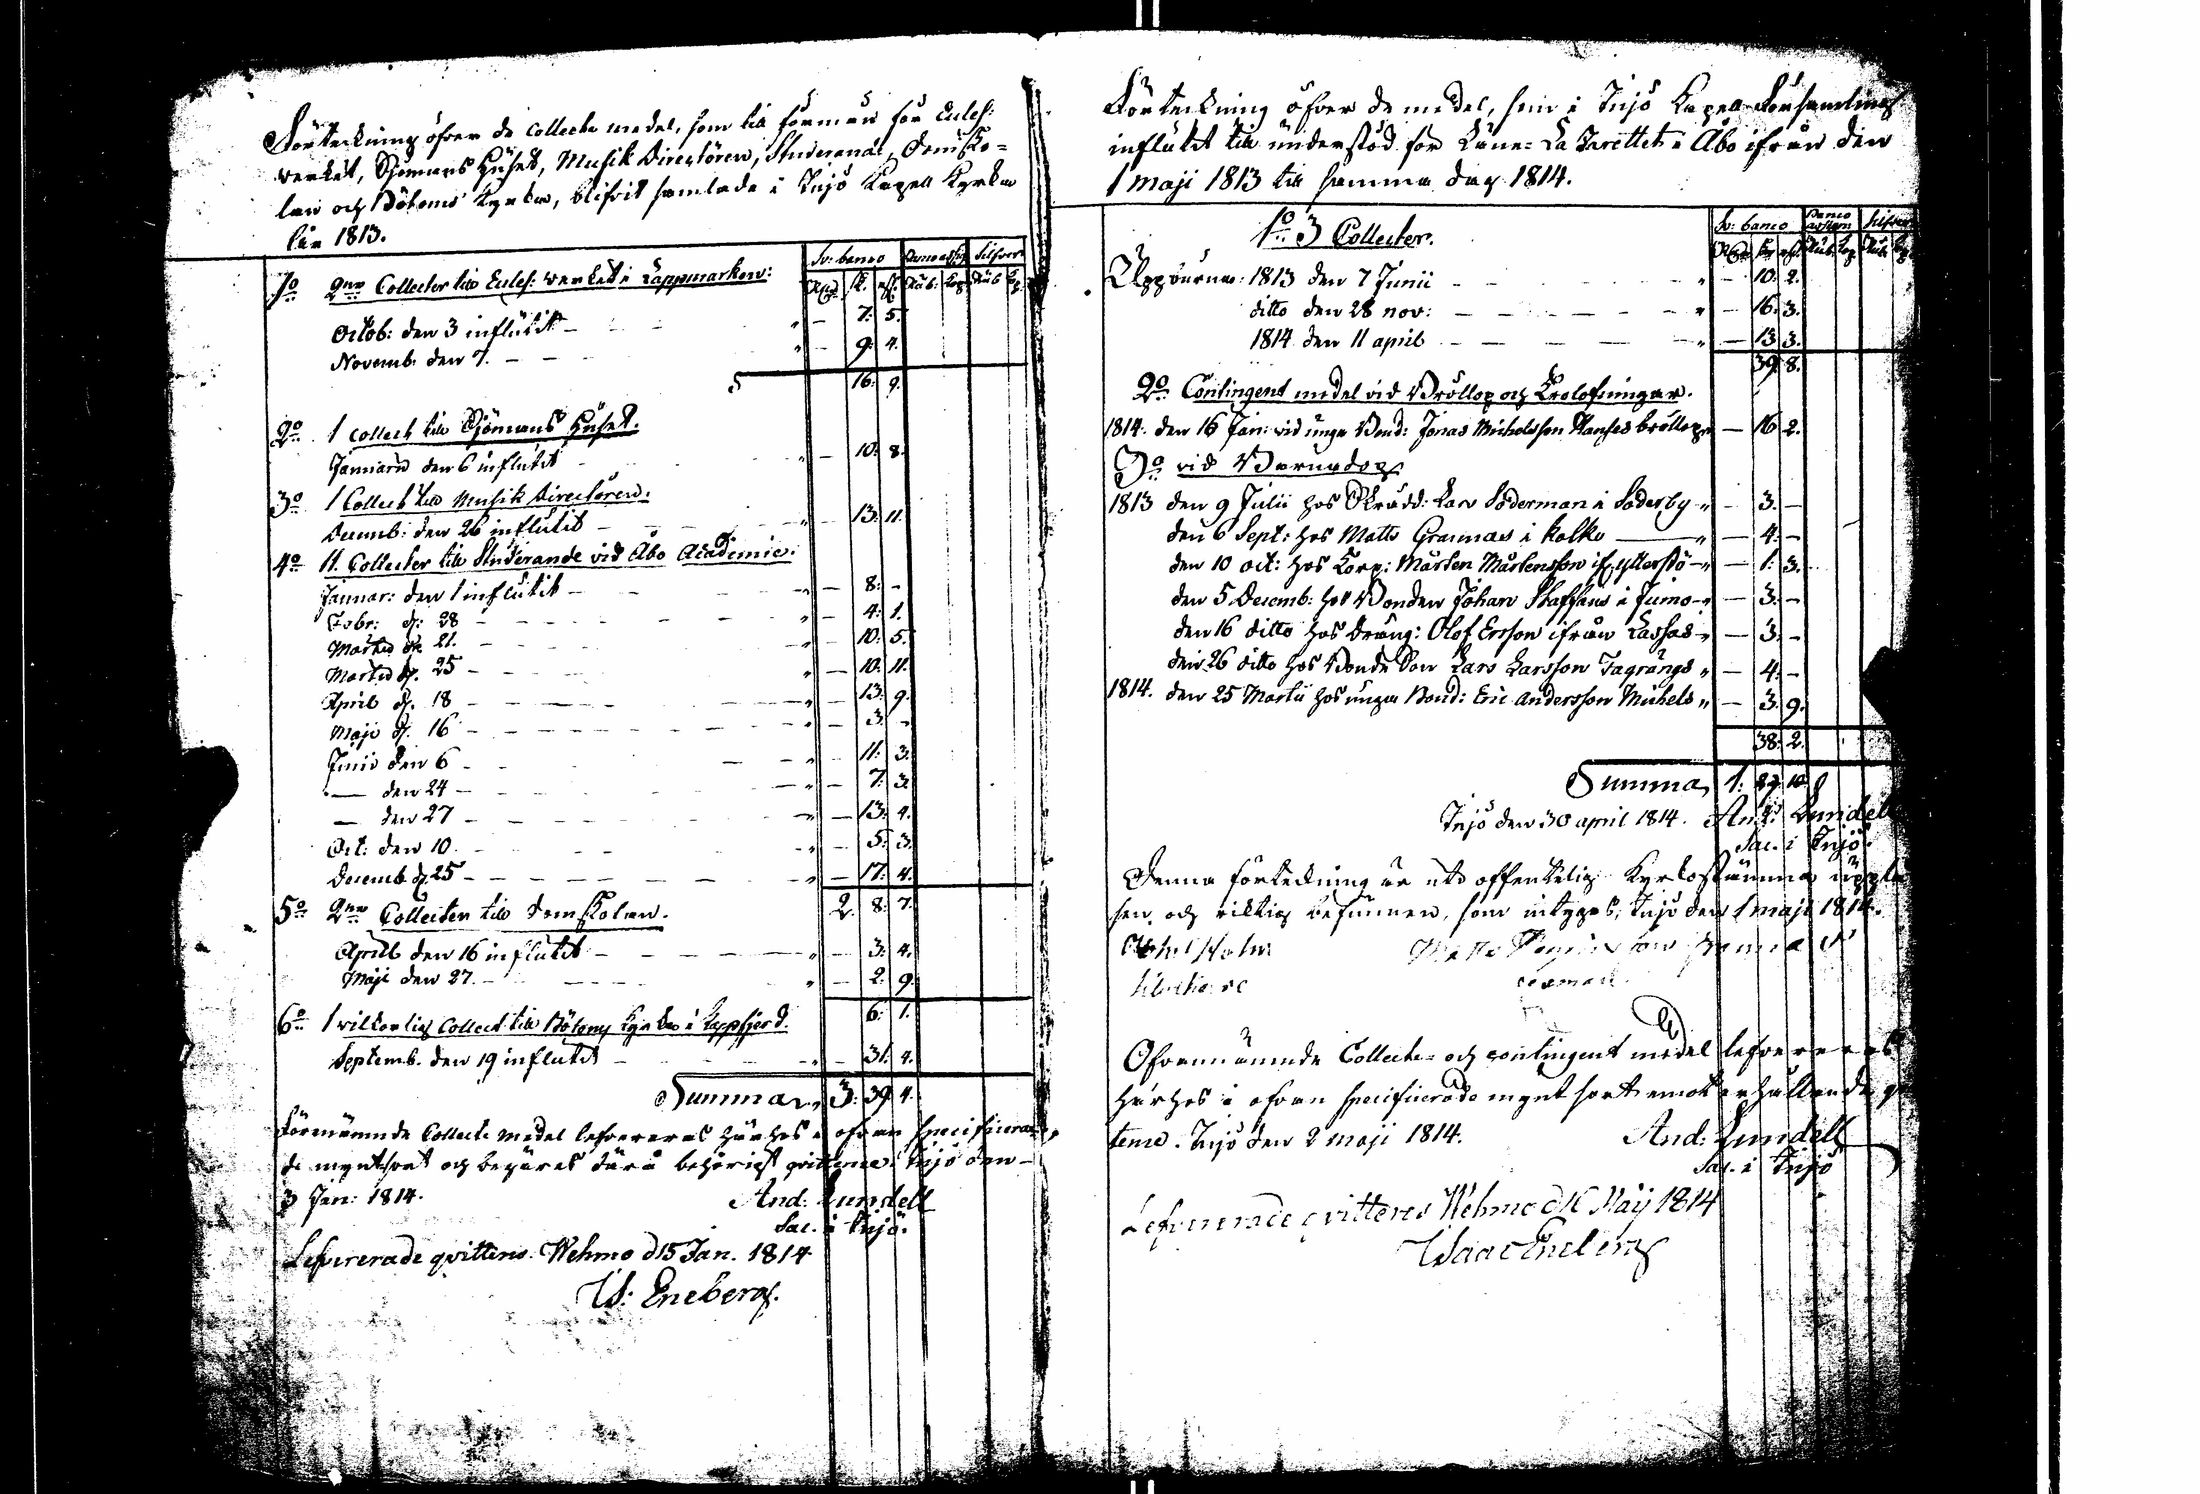 Förteckning öfver de collecte medel, som till förmån för Eccles:
verket, Sjömans Huset, Musik Directören, Studerande, Domsko-
lan och Bötoms Kyrka, blifvit samlade i Iniö Kapell Kyrka
för 1813.
Sv: banco Banco assign Silfver
Rd sk. rst. Rub: Kop Rub Kop
1o 2ne Collecter till Eccles: verket i Lappmarken:
Octob: den 3 influtit - - - " - 7. 5.
Novemb. den 7. - - " - 9. 4.
S 16. 9.
2o 1 Collect till Sjömans Huset.
Januarii den 6 influtit - " - 10. 8.
3o 1 Collect till Musik Directören.
Decemb: den 26 influtit - - - " - 13. 11.
4o 11. Collecter till Studerande vid Åbo Academie.
Januar: den 1 influtit - - " - 8. -
Febr: d: 28 - - - " - 4. 1.
Martii d: 21. - - - " - 10. 5.
Martii d. 25 - - - " - 10. 11.
April d. 18 - - - " - 13. 9.
Maji d. 16 - - - " - 3. -
Junii den 6 - - - " - 11. 3.
— den 24 - - - " - 7. 3.
— den 27 - - - " - 13. 4.
Oct: den 10. - - " - 5. 3.
Decemb d. 25 - - - " - 17. 4.
2. 8. 7.
5o 2ne Collecter till Domskolan.
April den 16 influtit - - - " - 3. 4.
Maji den 27. - - - " - 2. 9.
6. 1.
6o 1 vilkorlig Collect till Bötoms Kyrka i Lappfjerd.
Septemb. den 19 influtit - - - " - 31. 4.
Summa 3. 39. 4.
Förnämnde Collecte medel lefvereras härhos i ofvan specificera-
de myntsort och begäres därå behörigt qvittence. Iniö den
3 Jan: 1814. And: Lundell
Sac. i Iniö.
Lefvererade qvitteras. Wehmo d 15 Jan. 1814
Is: Eneberg.
Förteckning öfver de medel, som i Iniö Kapell Församling
influtit till understöd för Läns-Lazarettet i Åbo ifrån den
1 Maji 1813 till samma dag 1814.
1o 3 Collecter.
Sv: banco Banco assign Silfver
Rd sk rst. Rub. Kop. Rub. Kop
Uppburne: 1813 den 7 Junii - - - " - 10. 2.
ditto den 28 nov: - - - " - 16. 3.
1814 den 11 april - - - " - 13. 3.
39. 8.
2o Contingent medel vid Bröllop och Trolofningar.
1814. den 16 Jan: vid unge Bond: Jonas Michelsson Hanses bröllop " - 16 2.
3o vid Barndop
1813 den 9 Julii hos Skrädd: Lars Söderman i Söderby " - 3. -
den 6 Sept: hos Matts Grannas i Kolko - " - 4. -
den 10 oct: hos Korp: Mårten Mårtensson if. ytterstö - " - 1. 3.
den 5 Decemb: hos Bonden Johan Staffans i Jumo - " - 3. -
den 16 ditto hos dräng: Olof Ersson ifrån Lassas - " - 3. -
den 26 ditto hos Bonde Son Lars Larsson Tagrängs " - 4. -
1814. den 25 Martii hos unga Bond: Eric Andersson Michels " - 3. 9.
38. 2.
Summa 1.
Iniö den 30 april 1814. And: Lundell
Sac. i Iniö.
Denna förteckning är uti offentelig Kyrkostämma upplä
sen, och riktig befunnen, som intygas; Iniö den 1 maji 1814.
Ofvannämnde Collecte- och contingent medel lefvereras
härhos i ofvan specificerade mynt sort emot erhållande q
tence. Iniö den 2 maji 1814. And: Lundell
Sac. i Iniö
Lefvererade qvitteras Wehmo d 16 Maij 1814
Isaac Eneberg